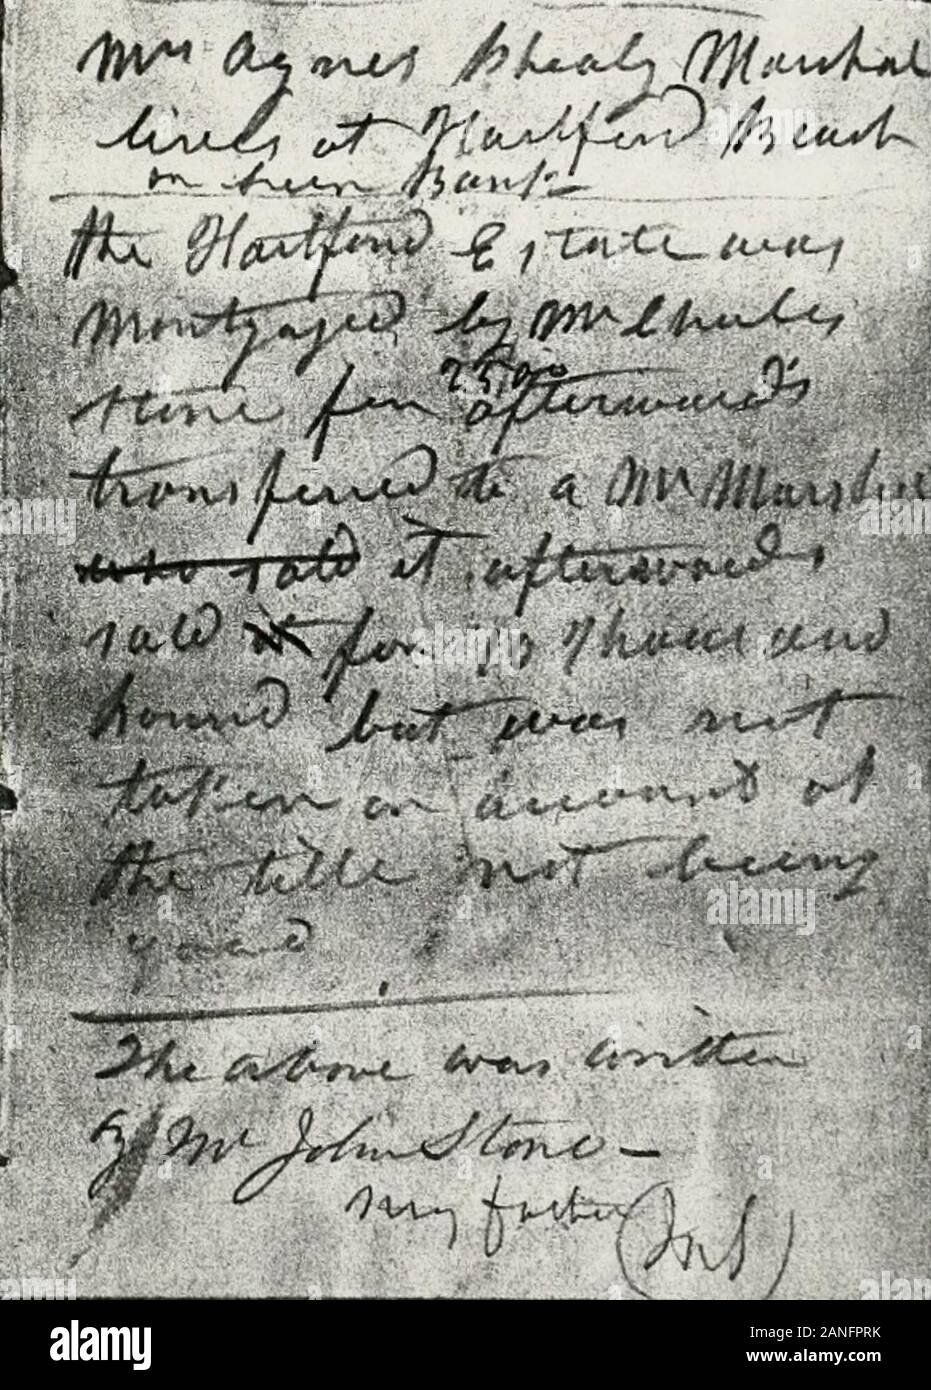 Mrs Agnes Shealy Marshal
lives at Hartford Beach
on Bank
the Hartford Estate was
Mortgaged by Mr Charles
Stone for 2500 afterwards
transferred to a Mr Marshal
who sold it afterwards
sold it for 13 Thousand
Pound but was not
taken on account of
the title not being
good
The above was written
By Mr John Stone –
my father (JMS)
alamy
Image ID: 2ANFPRK
www.alamy.com